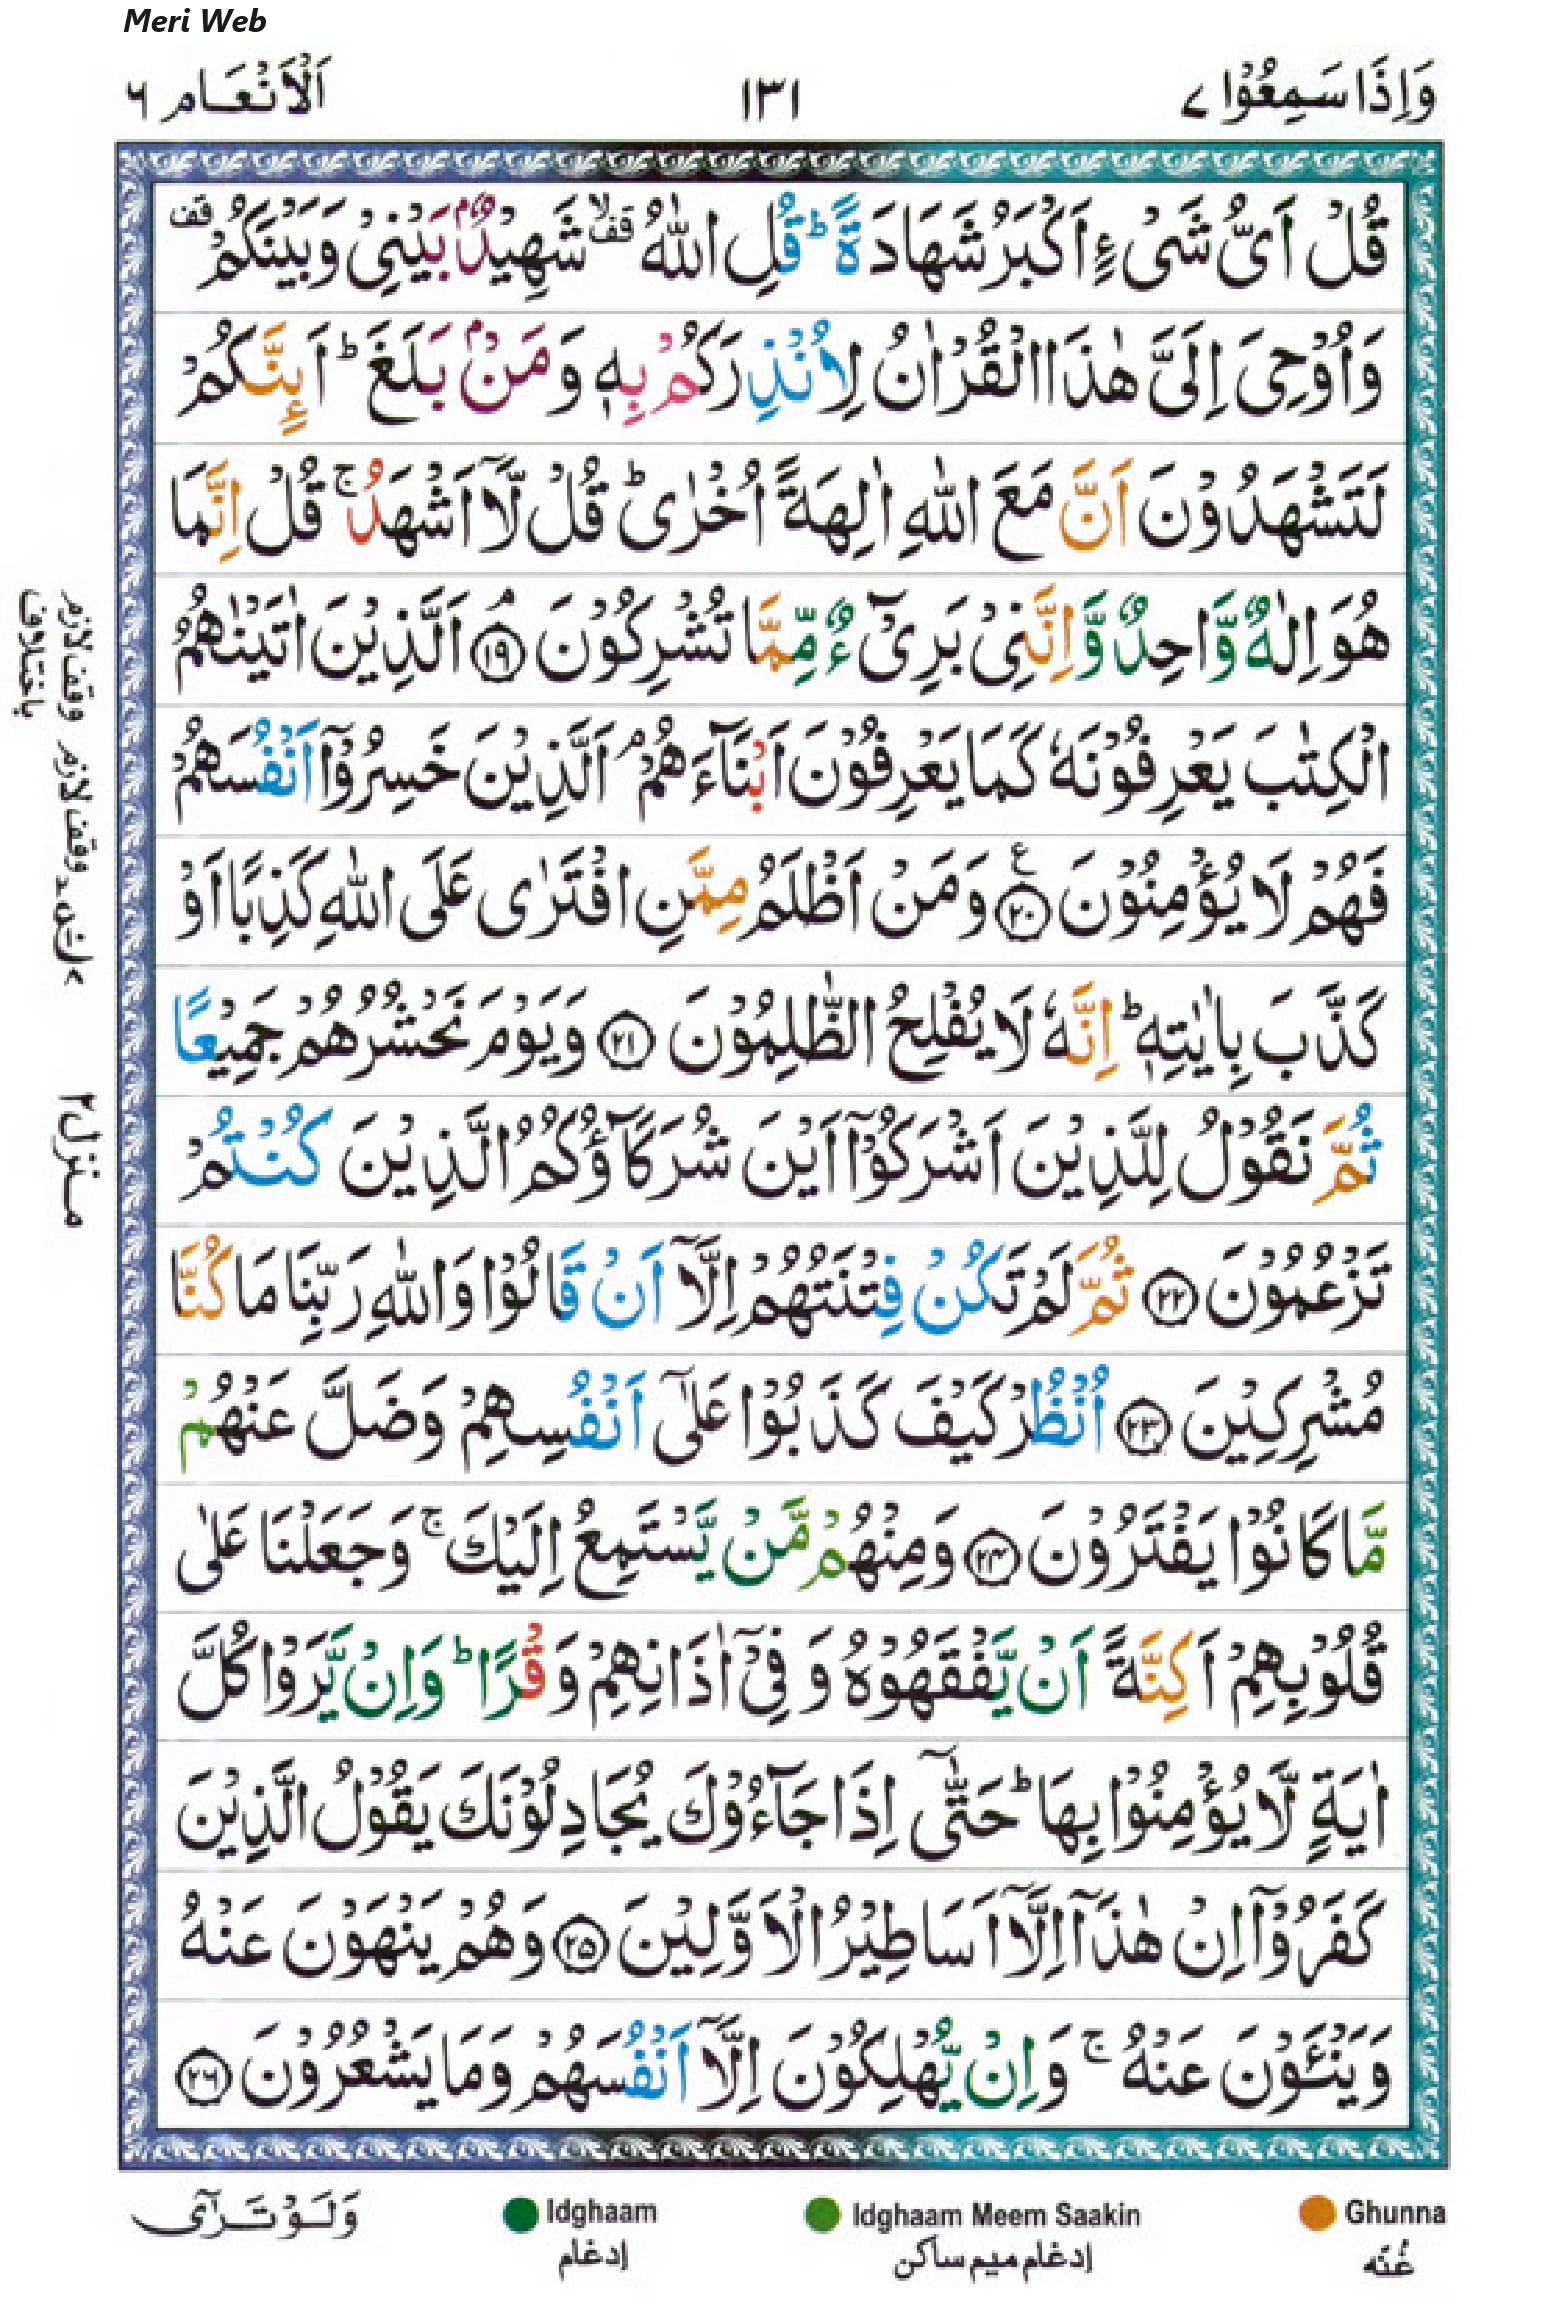 Meri Web
وَاِذَا سَمِعُوْا ٧
١٣١
اَلْاَنْعَام ٦
قُلْ اَىُّ شَىْءٍ اَكْبَرُ شَهَادَةً ؕ قُلِ اللّٰهُ قف لا شَهِيْدٌۢ بَيْنِىْ وَبَيْنَكُمْ قف
وَاُوْحِىَ اِلَىَّ هٰذَا الْقُرْاٰنُ لِاُنْذِرَكُمْ بِهٖ وَمَنْۢ بَلَغَ ؕ اَئِنَّكُمْ
لَتَشْهَدُوْنَ اَنَّ مَعَ اللّٰهِ اٰلِهَةً اُخْرٰى ؕ قُلْ لَّاۤ اَشْهَدُ ۚ قُلْ اِنَّمَا
هُوَ اِلٰهٌ وَّاحِدٌ وَّاِنَّنِىْ بَرِىْٓءٌ مِّمَّا تُشْرِكُوْنَ ۘ ﴿١٩﴾ اَلَّذِيْنَ اٰتَيْنٰهُمُ
الْكِتٰبَ يَعْرِفُوْنَهٗ كَمَا يَعْرِفُوْنَ اَبْنَآءَهُمْ ۘ اَلَّذِيْنَ خَسِرُوْۤا اَنْفُسَهُمْ
فَهُمْ لَا يُؤْمِنُوْنَ ﴿٢٠﴾ ع وَمَنْ اَظْلَمُ مِمَّنِ افْتَرٰى عَلَى اللّٰهِ كَذِبًا اَوْ
كَذَّبَ بِاٰيٰتِهٖ ؕ اِنَّهٗ لَا يُفْلِحُ الظّٰلِمُوْنَ ﴿٢١﴾ وَيَوْمَ نَحْشُرُهُمْ جَمِيْعًا
ثُمَّ نَقُوْلُ لِلَّذِيْنَ اَشْرَكُوْۤا اَيْنَ شُرَكَآؤُكُمُ الَّذِيْنَ كُنْتُمْ
تَزْعُمُوْنَ ﴿٢٢﴾ ثُمَّ لَمْ تَكُنْ فِتْنَتُهُمْ اِلَّاۤ اَنْ قَالُوْا وَاللّٰهِ رَبِّنَا مَا كُنَّا
مُشْرِكِيْنَ ﴿٢٣﴾ اُنْظُرْ كَيْفَ كَذَبُوْا عَلٰٓى اَنْفُسِهِمْ وَضَلَّ عَنْهُمْ
مَّا كَانُوْا يَفْتَرُوْنَ ﴿٢٤﴾ وَمِنْهُمْ مَّنْ يَّسْتَمِعُ اِلَيْكَ ۚ وَجَعَلْنَا عَلٰى
قُلُوْبِهِمْ اَكِنَّةً اَنْ يَّفْقَهُوْهُ وَفِىْۤ اٰذَانِهِمْ وَقْرًا ؕ وَاِنْ يَّرَوْا كُلَّ
اٰيَةٍ لَّا يُؤْمِنُوْا بِهَا ؕ حَتّٰٓى اِذَا جَآءُوْكَ يُجَادِلُوْنَكَ يَقُوْلُ الَّذِيْنَ
كَفَرُوْۤا اِنْ هٰذَاۤ اِلَّاۤ اَسَاطِيْرُ الْاَوَّلِيْنَ ﴿٢٥﴾ وَهُمْ يَنْهَوْنَ عَنْهُ
وَيَنْـَٔوْنَ عَنْهُ ۚ وَاِنْ يُّهْلِكُوْنَ اِلَّاۤ اَنْفُسَهُمْ وَمَا يَشْعُرُوْنَ ﴿٢٦﴾
وقف لازم
وقف لازم
باختلاف
منزل ٢
وَلَوْ تَرٰٓى
Idghaam
إدغام
Idghaam Meem Saakin
إدغام ميم ساكن
Ghunna
غُنّه